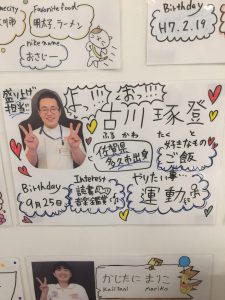 mecity
Favorite food
明太子、ラーメン
nite name
おさじー
Birthday
H7.2.19
盛り上げ
担当!!
古川 琢登
ふる かわ たくと
佐賀県
多久市出身
好きなもの
ご飯
Birthday
9月25日
Interest
読書
音楽鑑賞
やりたい事
運動
かじたに まりこ
Kajitani Mariko